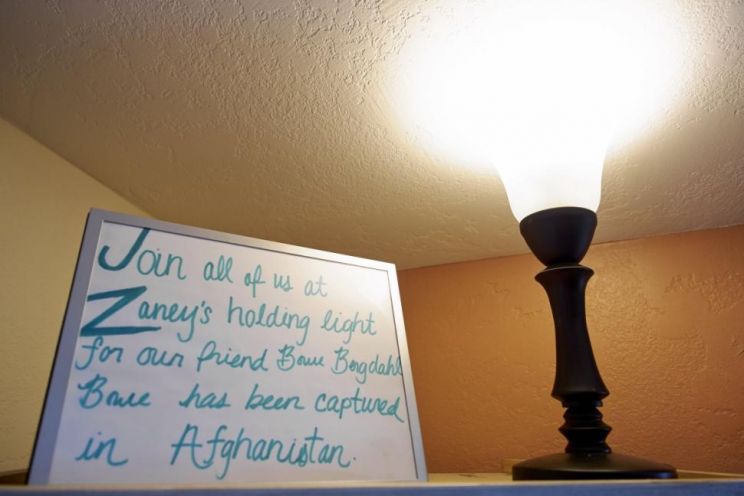 Join all of us at
Zaney's holding light
for our friend Bowe Bergdahl
Bowe has been captured
in Afghanistan.